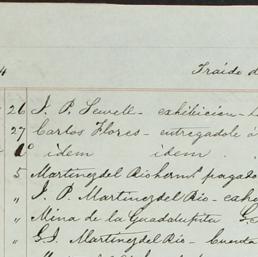 4
Traido d
26 J. P. Sewell - exhibicion -
27 Carlos Flores - entregadole á
1º idem idem .
5 Martinez del Rio herms pagado
„ J. P. Martinez del Rio - exh
„ Mina de la Guadalupita
„ G. I. Martinez del Rio - Cuenta